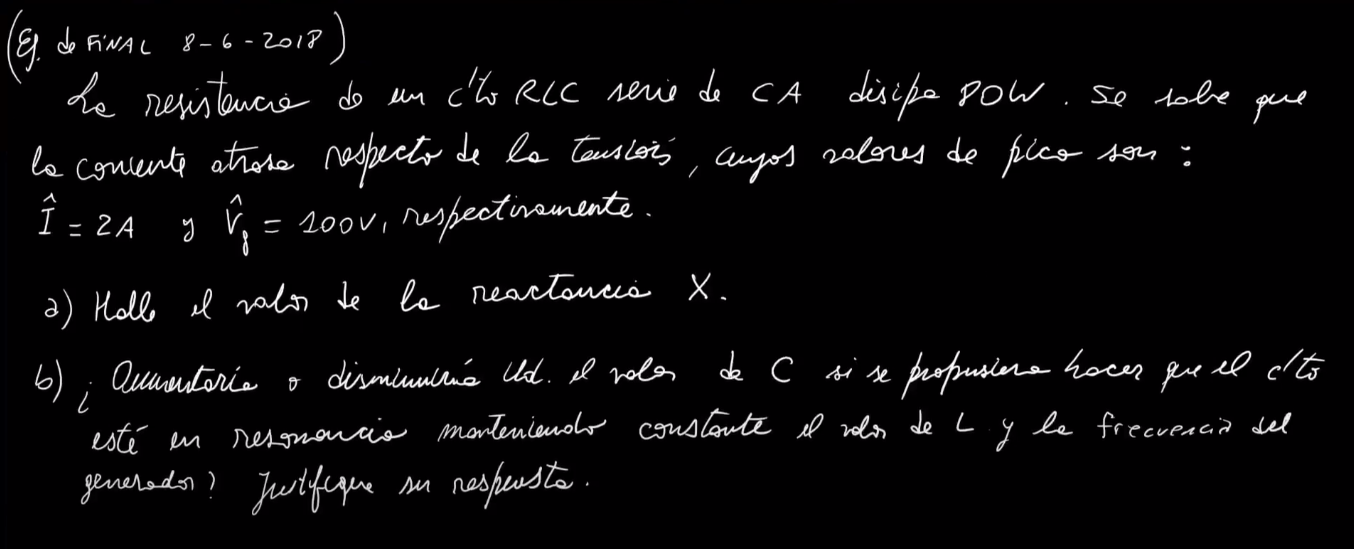 (Ej. de FINAL 8-6-2018)
La resistencia de un c'to RLC serie de CA disipa 80W. Se sabe que
la corriente atrasa respecto de la tensión, cuyos valores de pico son:
Î = 2A y V̂g = 100V, respectivamente.
a) Halle el valor de la reactancia X.
b) ¿Aumentaría o disminuiría Ud. el valor de C si se propusiera hacer que el c'to
esté en resonancia manteniendo constante el valor de L y la frecuencia del
generador? Justifique su respuesta.